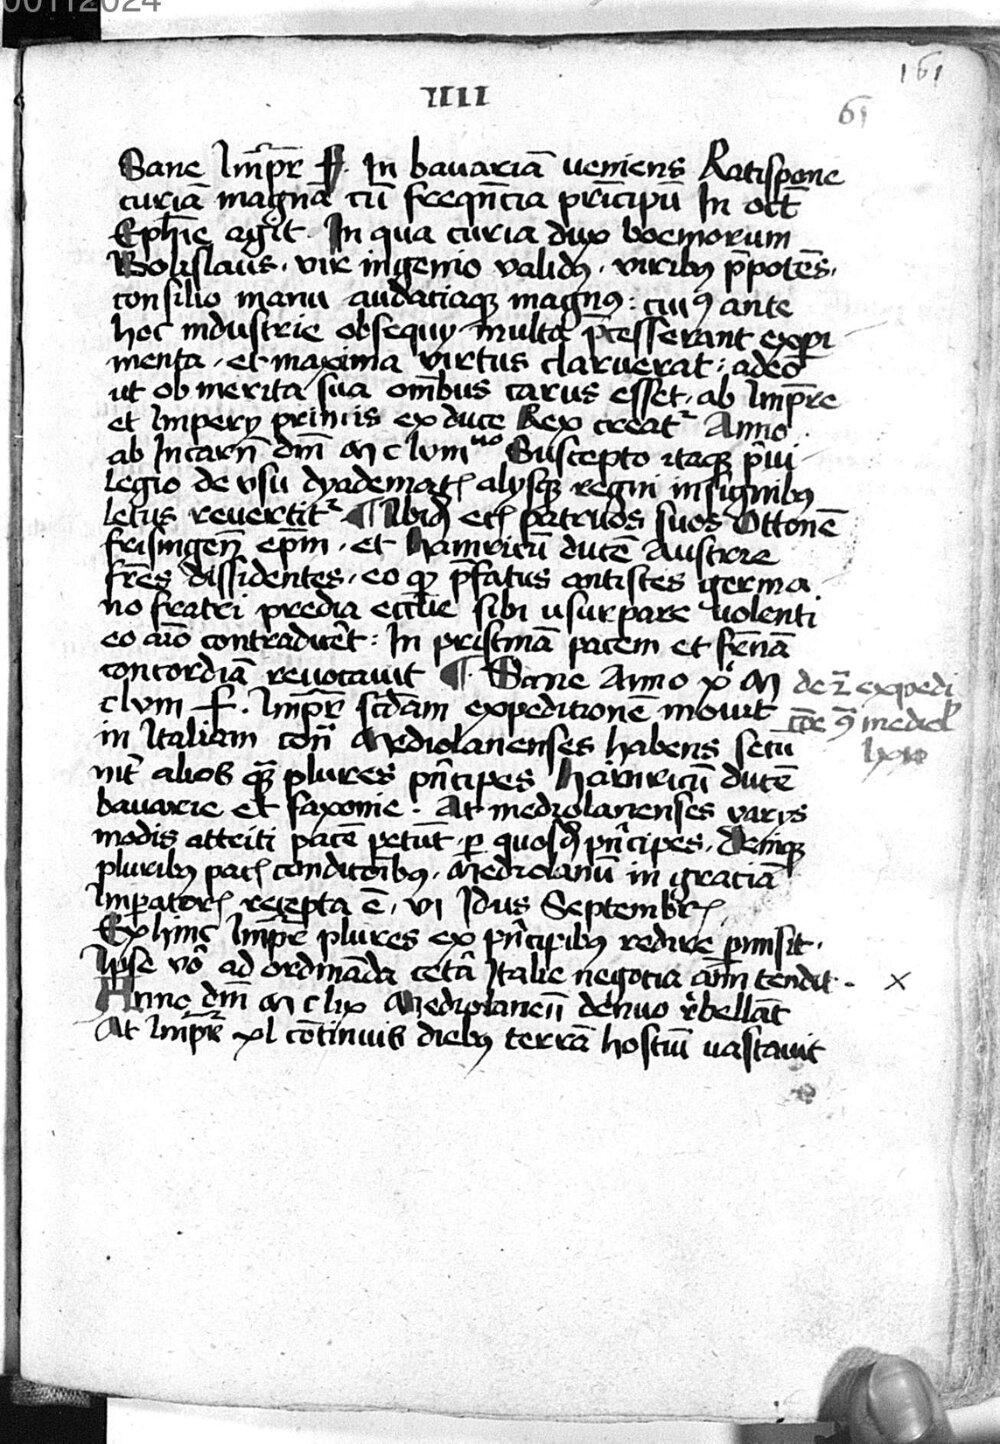 00112024
161
61
IIII
Sane Imp̄r F. In bavariā veniens Ratispone
curiā magnā cū freqn̄cia prīcipū In oct̄
Eph̄ie agit. In qua curia dux boemorum
Bolislaus. vir ingenio validꝰ. viribꝰ p̄potēs.
consilio manu audaciaqꝫ magnꝰ: cuiꝰ ante
hec industrie obsequiis multa p̄cesserant expi
menta. et maxima virtus claruerat: adeo
ut ob merita sua om̄ibus carus esset. ab Imp̄re
et Imperij principis ex duce Rex creatᷣ Anno
ab Incarn̄ dn̄i M c lviii Suscepto itaqꝫ p̄ui
legio de usu dyadematꝭ alijsqꝫ regni insignibꝰ
letus revertitᷣ. ¶ Ibidꝫ etꝭ patruos suos Ottonē
frisingen̄ ep̄m. et hainricū ducē Austrie
fr̄es dissidentes. eo qꝫ p̄fatus antistes germa
no fratri predia ecclie sibi usurpare volenti
eo aīo contradicēt: In pristinā pacem et fr̄nā
concordiā revocavit ¶. Sane Anno xͥ M
clviii F. Imp̄r scd̄am expeditionē movit
in Italiam con̄ Mediolanenses habens secū
nit̄ alios qꝫ plures pn̄cipes hainricū ducē
bavarie et saxonie. At mediolanenses varijs
modis attriti pacē petūt. ꝑ quosdꝫ pn̄cipes. Deniqꝫ
pluribꝰ pacꝭ condicōibꝰ. Mediolanū in graciā
Imperatorꝭ recepta ē. vi Idus Septembrꝭ
Exhinc Imp̄r plures ex pn̄cipibus redire p̄misit.
Ipse vō ad ordināda cetā Italie negocia aīm tendit.
Anno dn̄i M c lix Mediolanen̄ denuo r̄bellāt
At Imp̄r xl cōtinuis diebꝰ terrā hostiū vastavit
de 2ᵃ expedi
cōe ꝯ mediol
x